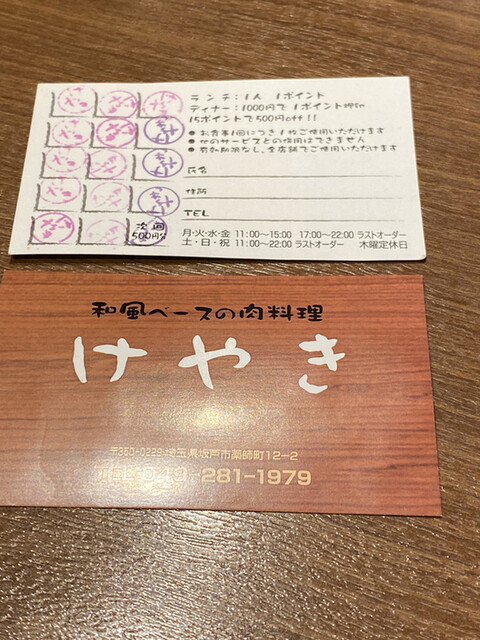 ランチ：1人 1ポイント
ディナー：1000円で1ポイント押印
15ポイントで500円off!!
●お食事1回につき1枚ご使用いただけます
●他のサービスとの併用はできません
●有効期限なし、全店舗でご使用いただけます
氏名
住所
TEL
次回
500円引
月・火・水・金 11:00～15:00 17:00～22:00 ラストオーダー
土・日・祝 11:00～22:00 ラストオーダー 木曜定休日
和風ベースの肉料理
けやき
〒350-0229 埼玉県坂戸市薬師町12-2
TEL 049-281-1979